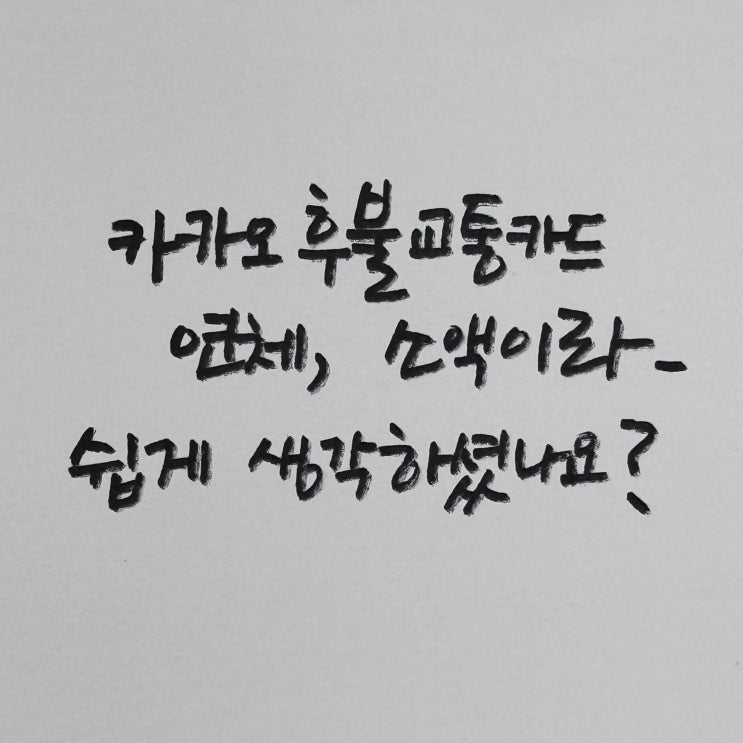 카카오 후불 교통카드
연체, 소액이라_
쉽게 생각하셨나요?